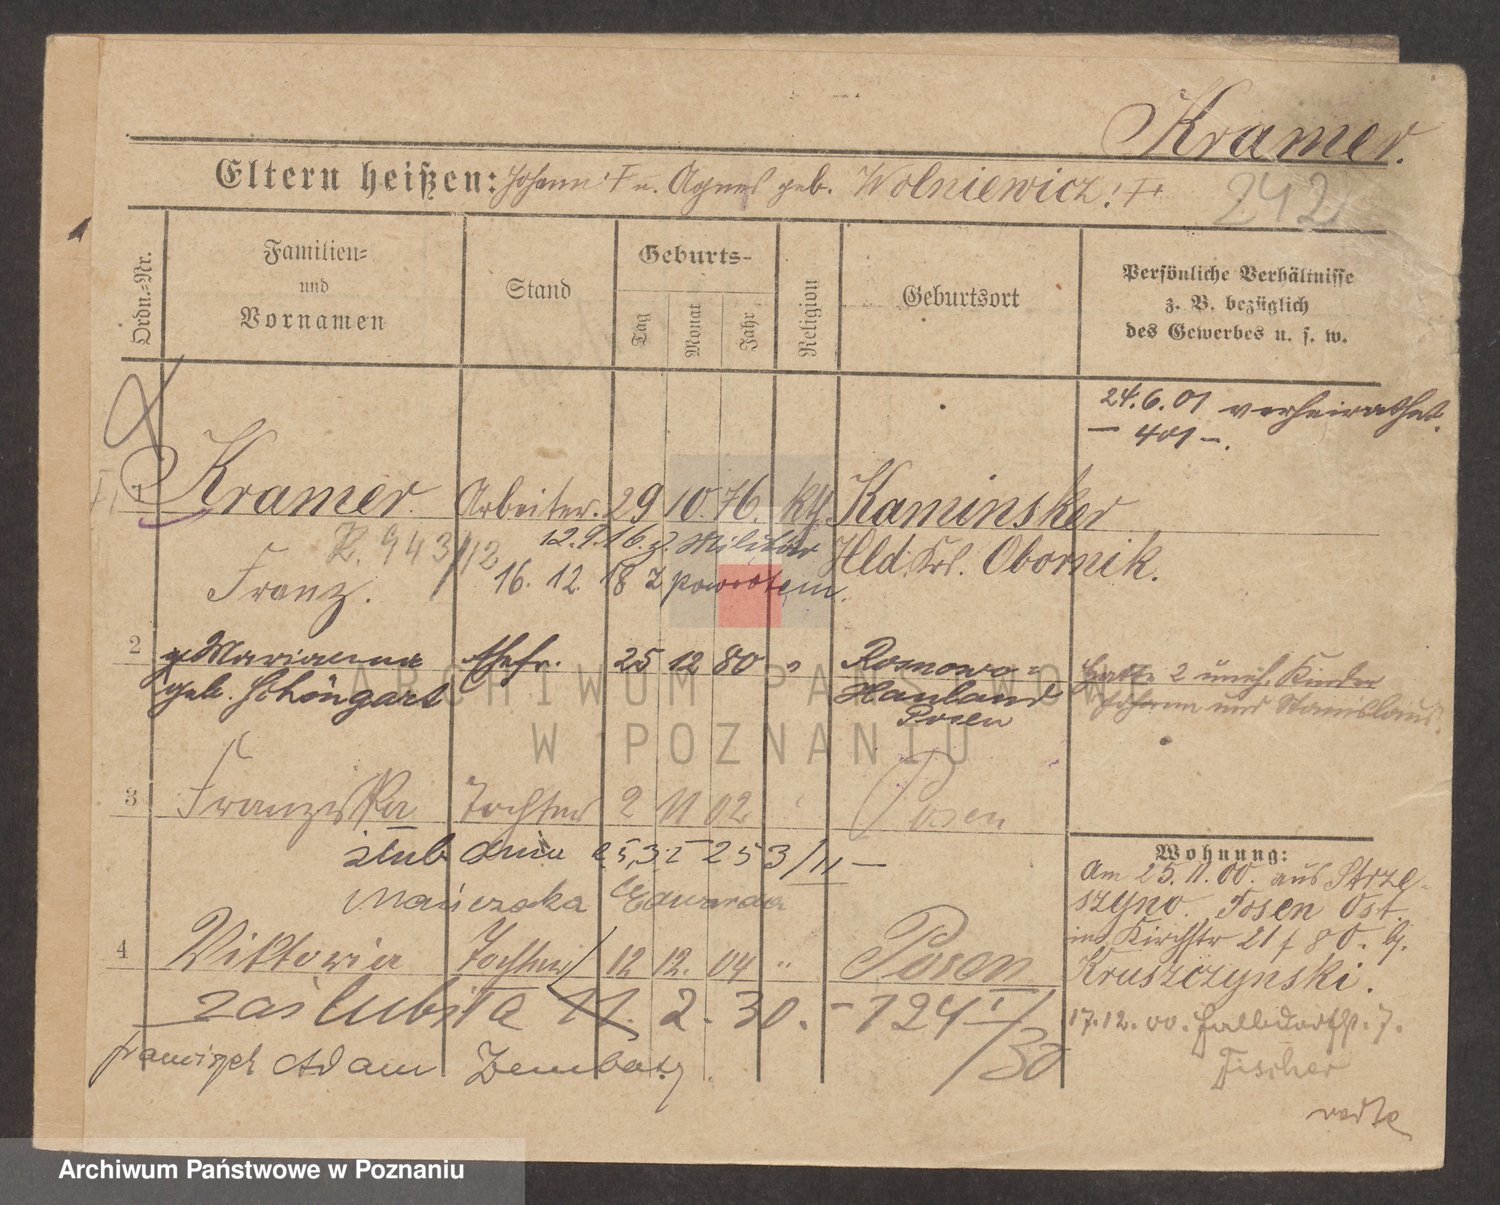 Kramer.
Eltern heißen: Johann † u. Agnes geb. Wolniewicz †
242
Ordn.=Nr.
Familien=
und
Vornamen
Stand
Geburts-
Tag
Monat
Jahr
Religion
Geburtsort
Persönliche Verhältnisse
z. B. bezüglich
des Gewerbes u. s. w.
24.6.01 verheirathet.
— 401 —.
1 Kramer. Arbeiter. 29 10. 76. kth Kaminsker
R. 943/12 12.9.16. z. Militär Hld. Krs. Obornik.
Franz. 16. 12. 18 z powrotem.
2 Marianna Ehefr. 25 12 80 " Romowo=
geb. Schöngart Hauland
Posen
hatte 2 uneh. Kinder
Johann und Stanislaus
3 Franziska Tochter 2 11 02 Posen
ślub dnia 25,3. 253/II —
Edwarda
4 Viktoria Tochter 12 12. 04 " Posen
zaślubiła 11. 2. 30. - 124 I/30
Franciszek Adam
Wohnung:
Am 25.11.00. aus Strze-
szyno. Posen Ost.
ins Kirchstr 21 f 80. b.
Kruszczynski.
17.12.00. Halbdorfstr. 7.
Fischer